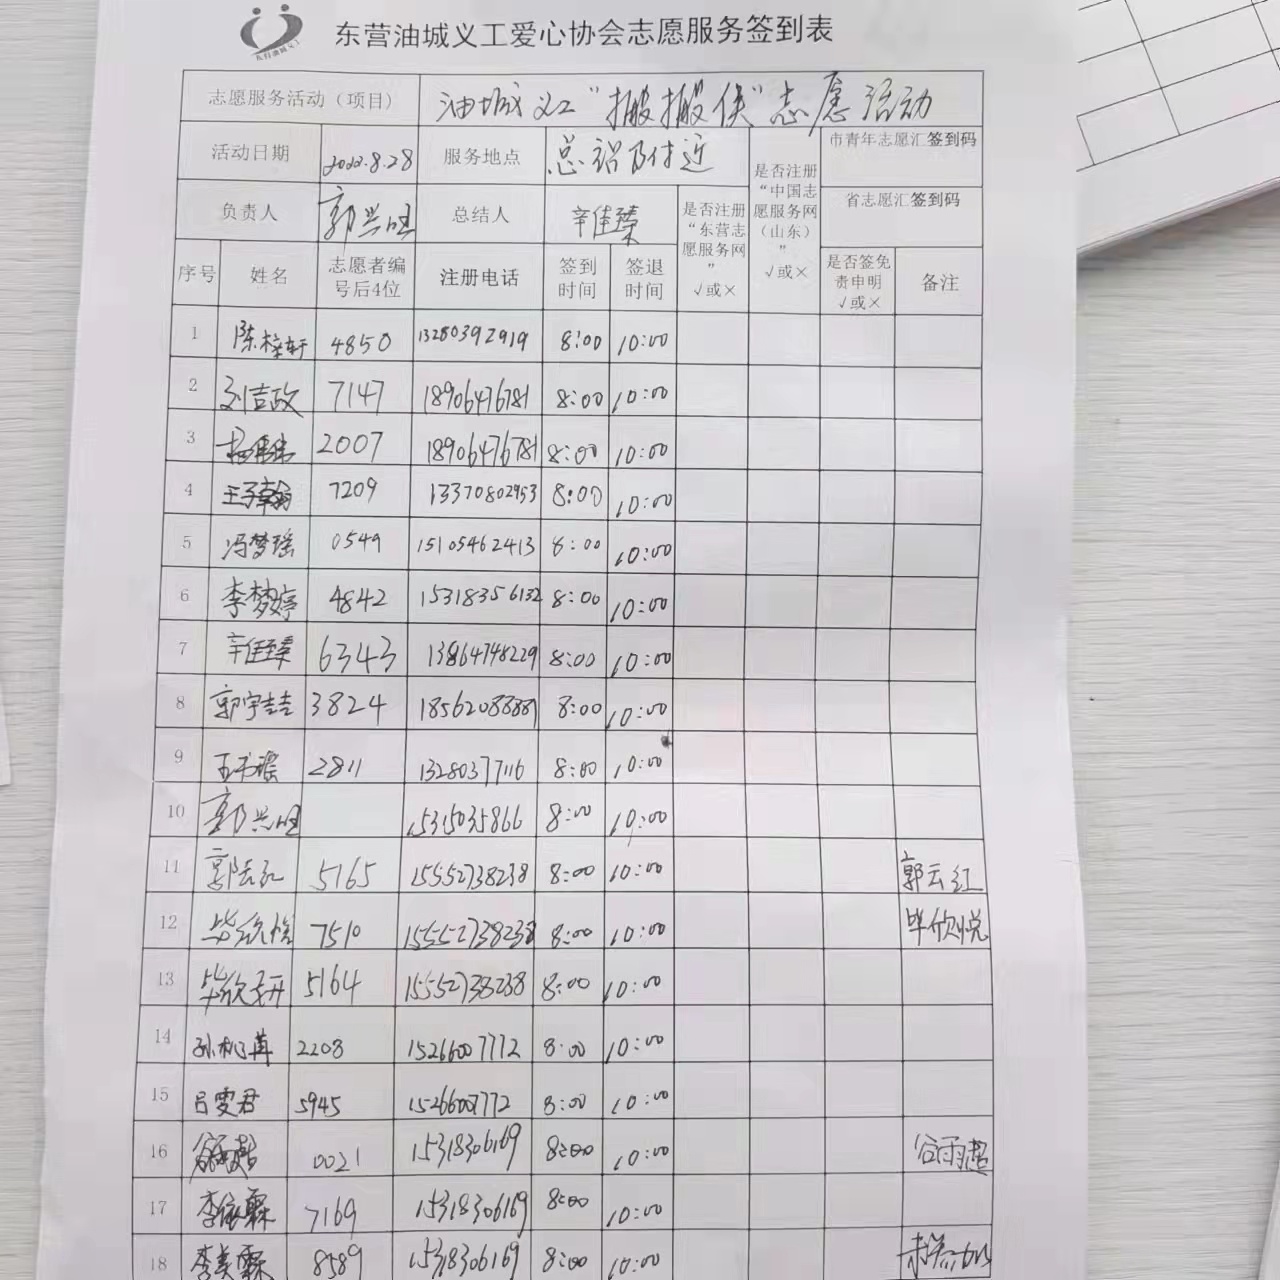 东营油城义工爱心协会志愿服务签到表
志愿服务活动（项目） 油城义工“搬搬侠”志愿活动
活动日期 2022.8.28 服务地点 总站及附近 是否注册“中国志愿服务网（山东）”√或× 市青年志愿汇签到码
负责人 郭兴旺 总结人 辛佳臻 是否注册“东营志愿服务网”√或× 省志愿汇签到码
序号 姓名 志愿者编号后4位 注册电话 签到时间 签退时间 是否签免责申明√或× 备注
1 陈梓轩 4850 13280392919 8:00 10:00
2 刘吉政 7147 18906476781 8:00 10:00
3 2007 18906476781 8:00 10:00
4 王子翰 7209 13370802953 8:00 10:00
5 冯梦瑶 0549 15105462413 8:00 10:00
6 李梦婷 4842 15318356132 8:00 10:00
7 辛佳臻 6343 13864748229 8:00 10:00
8 郭宇喆 3824 18562088881 8:00 10:00
9 2811 13280377116 8:00 10:00
10 郭兴旺 15315035866 8:00 10:00
11 郭云红 5165 15552738238 8:00 10:00 郭云红
12 毕欣悦 7510 15552738238 8:00 10:00 毕欣悦
13 毕欣妍 5164 15552738238 8:00 10:00
14 2208 15266007772 8:00 10:00
15 吕雯君 5945 15266007772 8:00 10:00
16 谷雨超 0021 15318306169 8:00 10:00 谷雨超
17 李依霖 7169 15318306169 8:00 10:00
18 李美霖 8589 15318306169 8:00 10:00